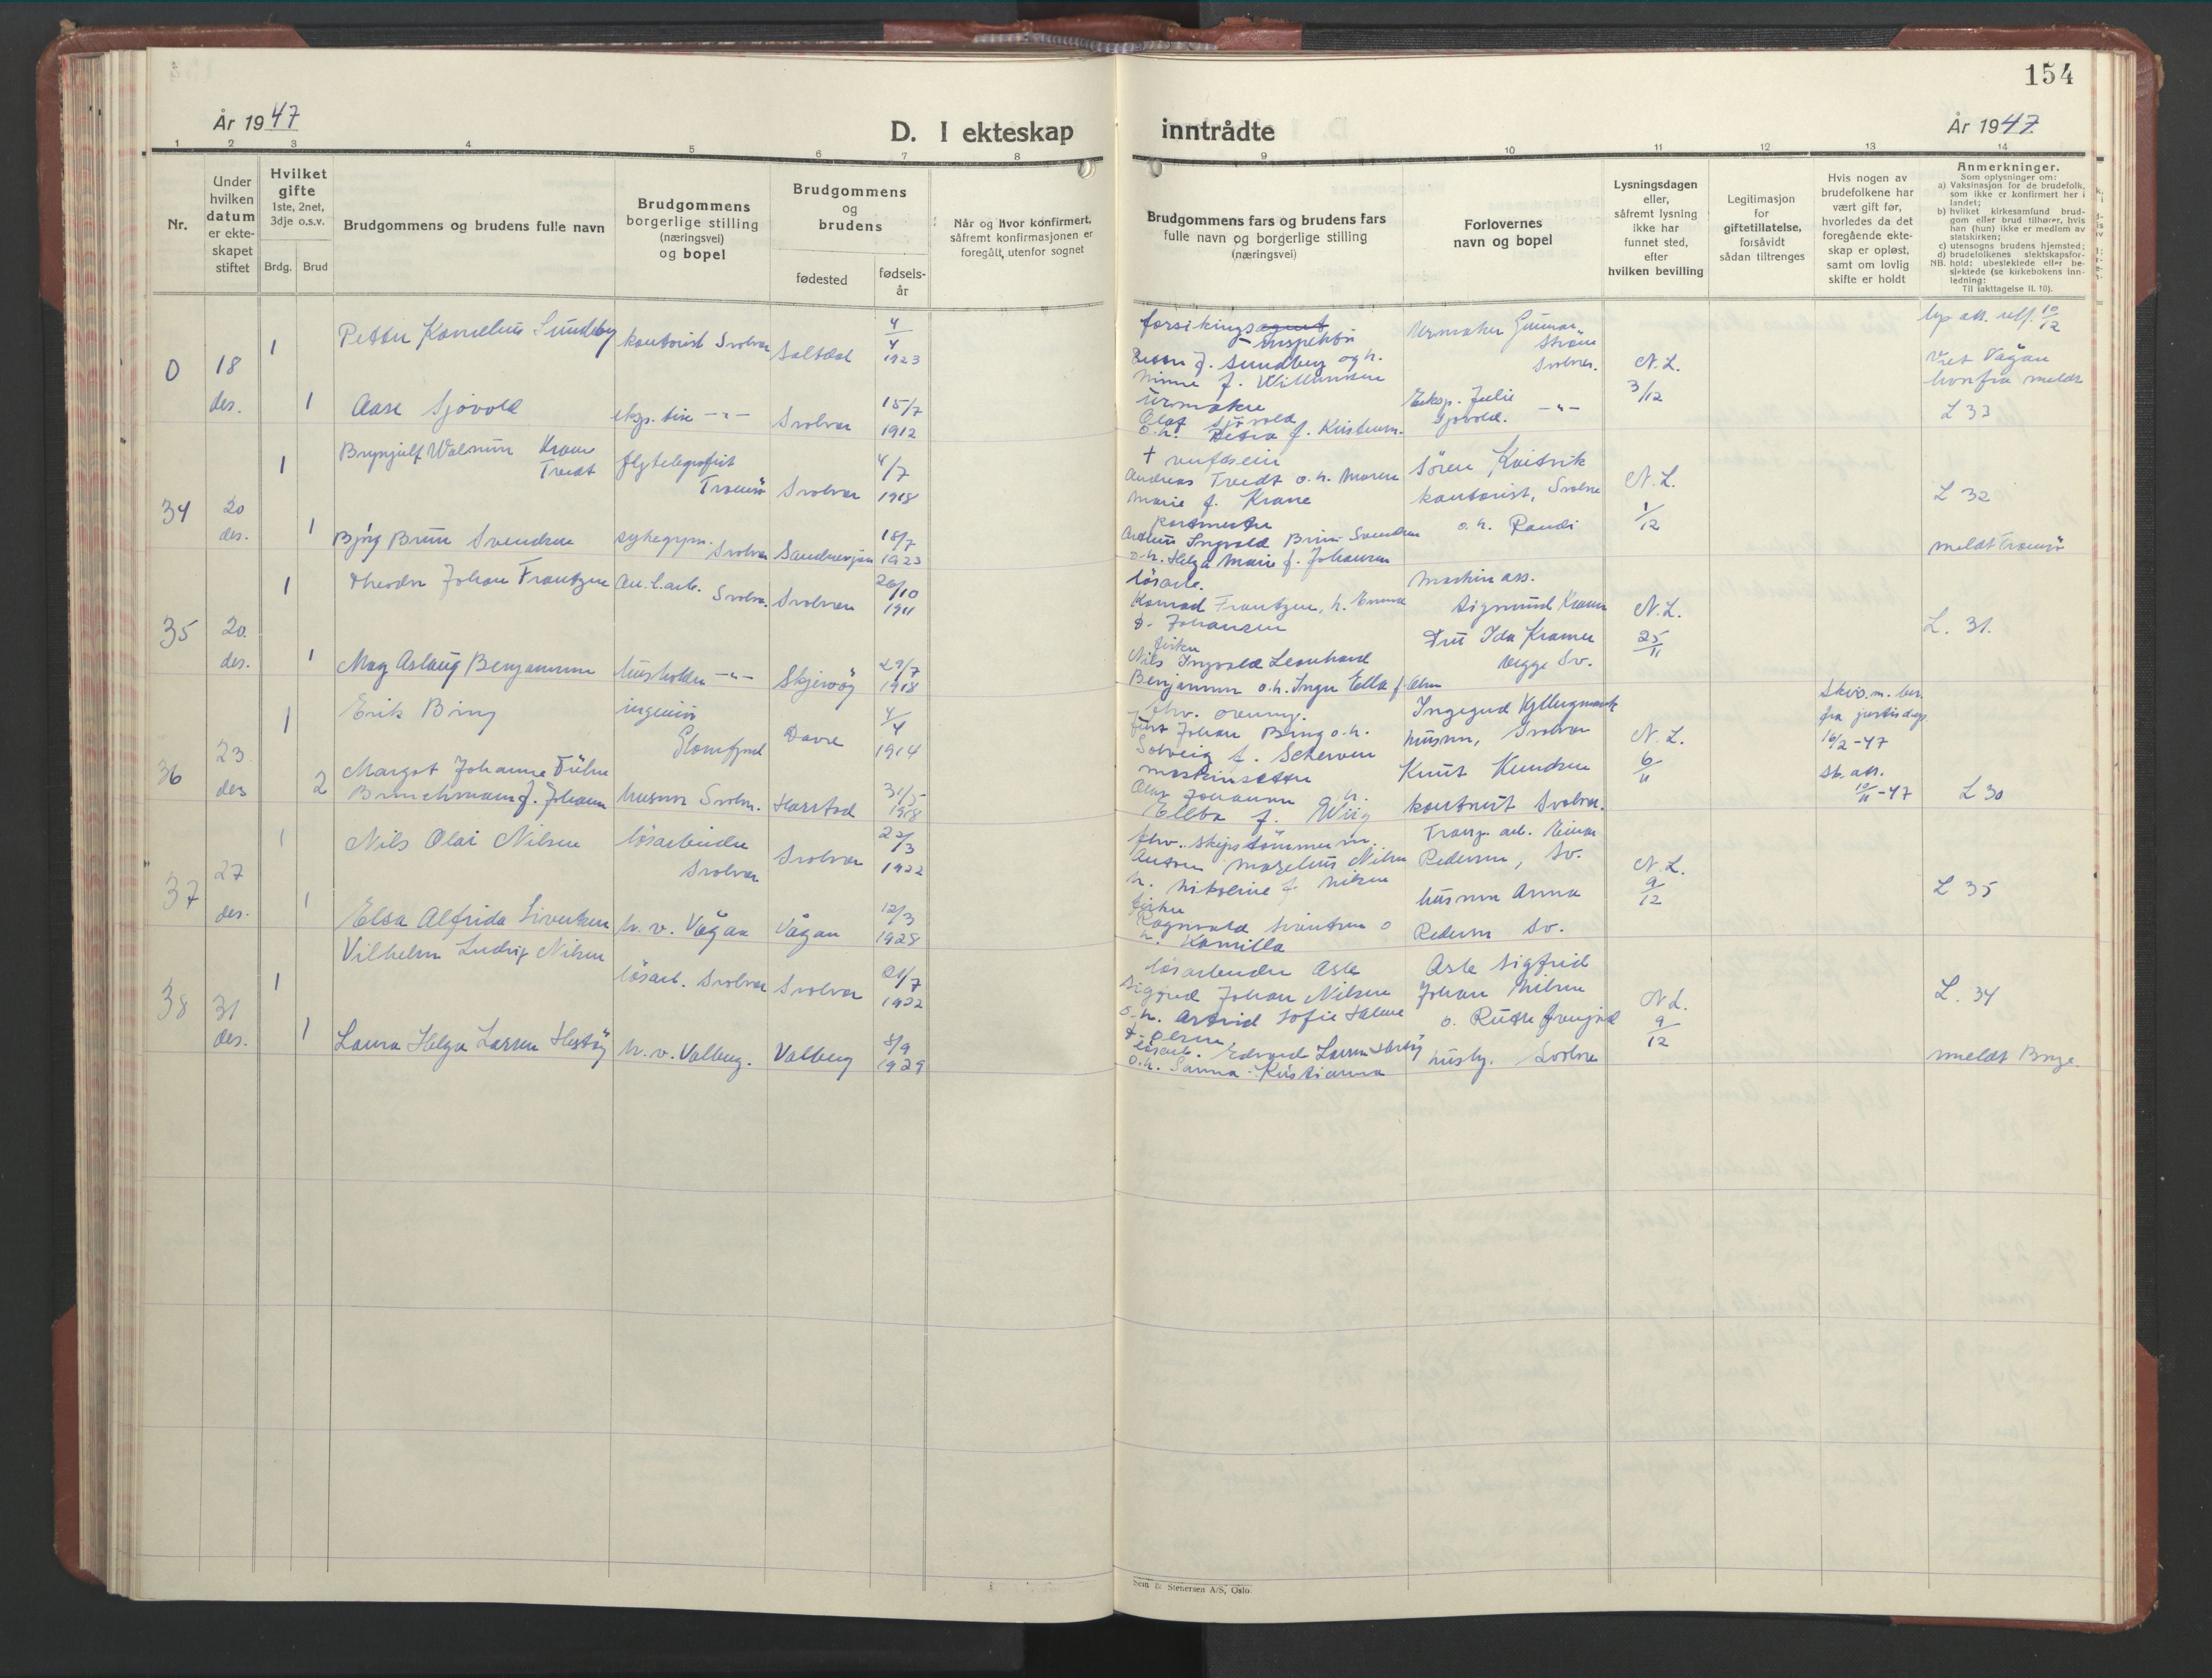 154
År 1947
D. I ekteskap inntrådte
År 1947
1 2 3 4 5 6 7 8 9 10 11 12 13 14
Nr.
Under hvilken datum er ekteskapet stiftet
Hvilket gifte
1ste, 2net, 3dje o.s.v.
Brdg. Brud
Brudgommens og brudens fulle navn
Brudgommens borgerlige stilling (næringsvei) og bopel
Brudgommens og brudens
fødested
fødselsår
Når og hvor konfirmert, såfremt konfirmasjonen er foregått utenfor sognet
Brudgommens fars og brudens fars fulle navn og borgerlige stilling (næringsvei)
Forlovernes navn og bopel
Lysningsdagen eller, såfremt lysning ikke har funnet sted, efter hvilken bevilling
Legitimasjon for giftetillatelse, forsåvidt sådan tiltrenges
Hvis nogen av brudefolkene har vært gift før, hvorledes da det foregående ekteskap er opløst, samt om lovlig skifte er holdt
Anmerkninger.
Som oplysninger om:
a) Vaksinasjon for de brudefolk, som ikke er konfirmert her i landet;
b) hvilket kirkesamfund brudgom eller brud tilhører, hvis han (hun) ikke er medlem av statskirken;
c) utensogns brudens hjemsted;
d) brudefolkenes slektskapsforhold: ubeslektede eller beslektede (se kirkebokens innledning:
NB.
Til iakttagelse II. 10).
0 18 des.
1 Petter Kornelius Sundby
kontorist Svolvær
Saltdal
4/4 1923
forsikringsagent
- inspektør
Petter J. Sundberg og h.
Minne f. Williamsen
Urmaker Gunnar Strøm
Svolvær.
N. L. 3/12
10/12
Viet Vågan
hvorfra meldt
L 33
1 Aase Sjövold
eksp. trise -"-
Svolvær
15/7 1912
Urmaker
Olaf Sjövold
o. h. Petra f. Kristensen.
Eksp. Julie
Sjövold. -"-
34 20 des.
1 Brynjulf Walnum Krane Tvedt
flytelegrafist
Tromsö
Svolvær
4/7 1918
Andreas Tvedt o. h. Maren
Marie f. Krane
Sören Kvitvik
kontorist, Svolvær
o. h. Randi
N. L. 1/12
L 32
1 Björg Bruun Svendsen
sykegym. Svolvær
Sandnessjøen
18/7 1923
postmester
Ingvald Bruun Svendsen
o. h. Helga Marie f. Johansen
meldt Tromsö
35 20. des.
1 Theodor Johan Frantzen
an.l.arb. Svolv.
Svolvær
26/10 1911
lösarb.
Konrad Frantzen, h. Emma
f. Johansen
Maskin ass.
Sigmund Kramer
Fru Ida Kramer
begge Sv.
N. L. 25/11
L. 31.
1 May Aslaug Benjaminsen
husholder -"-
Skjervöy
29/7 1918
fisker
Nils Ingvald Leonhard
Benjaminsen o. h. Inger Ella f. Olsen
36 23. des
1 Erik Bring
ingeniör
Glomfjord
Dovre
4/4 1914
Johan Bring o. h.
Solveig f. Scherven
Ingegerd Kjellugmark
husm, Svolvær
N. L. 6/11
Skils. m. bev.
fra justisdep.
16/2-47
sk. att.
10/11-47
L 30
2 Margot Johanne Führe
Brinchmann f. Johansen
husmor Svolv.
Harstad
31/5 1918
maskinsetter
Olav Johansen o. h.
Ellba f. Wiig
Knut Knudsen
kontorist Svolvær.
37 27 des.
1 Nils Olai Nilsen
lösarbeider
Svolvær
Svolvær
22/3 1922
fhv. skipstömmerm.
Anton Marelius Nilsen
h. Nikoline f. Nilsen
Transp. arb. Einar
Pedersen, Sv.
N. L. 9/12
L 35
1 Elsa Alfrida Sivertsen
h. v. Vågan
Vågan
12/3 1928
fisker
Ragnvald Sivertsen o
h. Kamilla
husmor Anna
Pedersen Sv.
38 31 des.
1 Vilhelm Ludvig Nilsen
lösarb. Svolvær
Svolvær
21/7 1922
lösarbeider Asle
Sigurd Johan Nilsen
o. h. Astrid Sofie Halvine
f. Olsen,
Asle Sigfrid
Johan Nilsen
o. Ruth
husby. Svolvær
N L. 9/12
L. 34
1 Laura Helga Larsen Hestöy
h. v. Valberg.
Valberg
8/9 1929
lösarb. Edvard Larsen Hestöy
o. h. Sanna Kristianna
meldt Borge.
Sem & Stenersen A/S, Oslo.